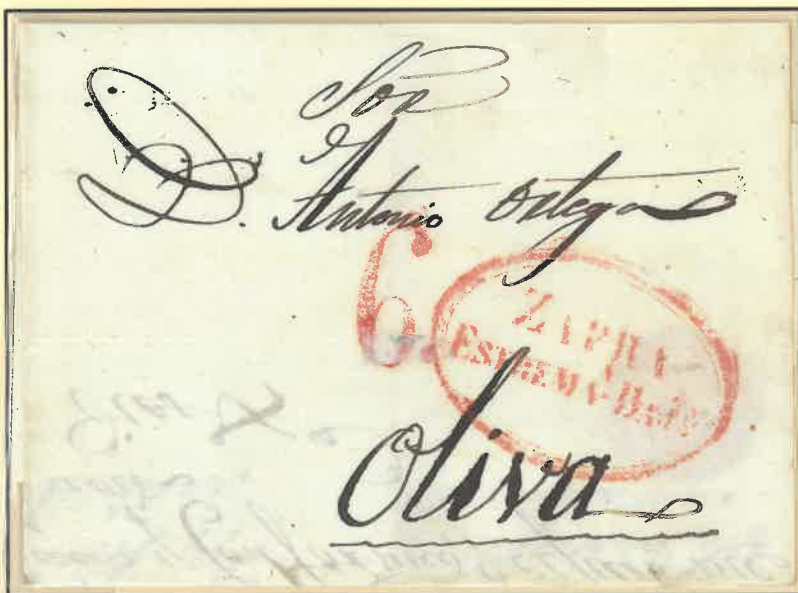 Sor
D. Antonio Ortega
6
ZAFRA
ESTREMA-BAJA
Oliva